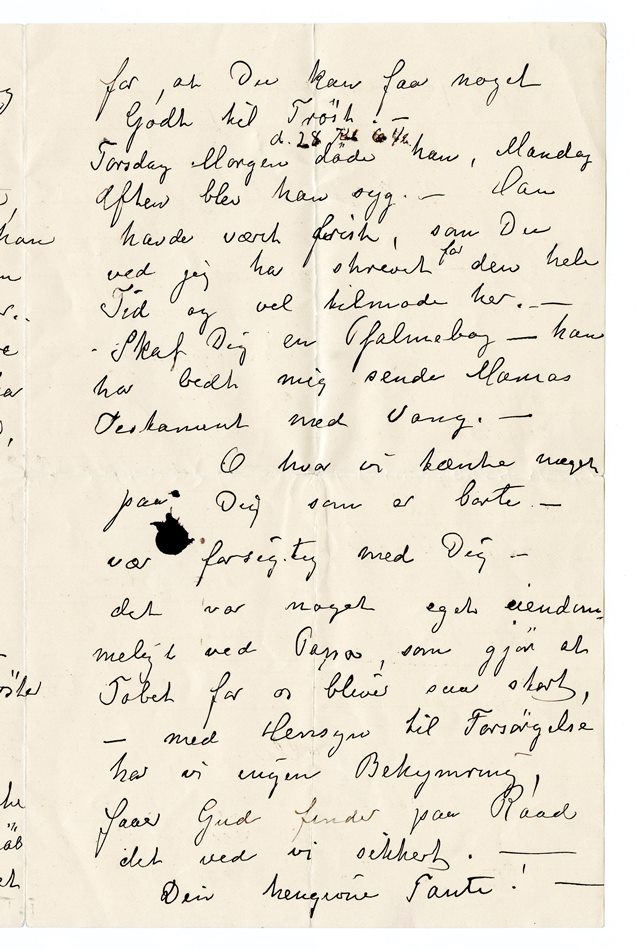 for, at Du kan faa noget
Godt til Trøst! —
d. 28
Torsdag Morgen døde han, Mandag
Aften blev han syg. — Han
havde været frisk, som Du
ved jeg har skrevet for den hele
Tid og vel tilmode her. —
- Skaf Dig en Psalmebog — han
har bedt mig sende Mamas
Testament med Vang. —
O hvor vi tænke meget
paa Dig som er borte. —
vær forsigtig med Dig —
det var noget eget eiendom-
meligt ved Pappa, som gjør at
Tabet for os bliver saa stort,
— med Hensyn til Forsørgelse
har vi ingen Bekymring,
faaer Gud finder paa Raad
det ved vi sikkert. —
Din hengivne Tante! —